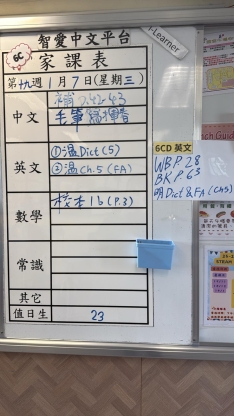 智愛中文平台
i-Learner
6C
家課表
第十九週 1月7日(星期三)
中文
補 P.42-43
毛筆
英文
①溫Dict(5)
②溫Ch.5(FA)
數學
校本1b(P.3)
常識
其它
值日生
23
6CD 英文
WB P.28
BK P.63
明Dict&FA(Ch5)